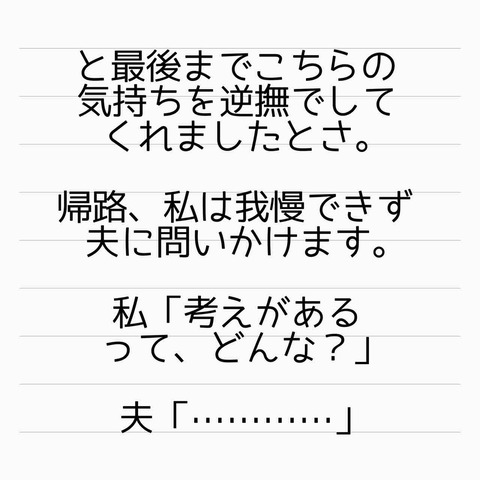 と最後までこちらの
気持ちを逆撫でして
くれましたとさ。
帰路、私は我慢できず
夫に問いかけます。
私「考えがある
って、どんな？」
夫「…………」